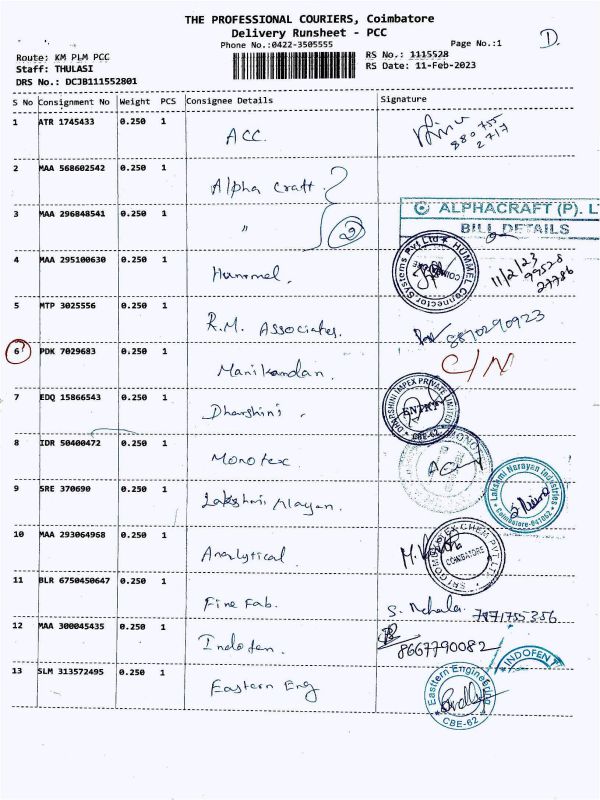 THE PROFESSIONAL COURIERS, Coimbatore
Delivery Runsheet - PCC
Phone No.:0422-3505555
Page No.:1
D.
Route: KM PLM PCC
Staff: THULASI
DRS No.: DCJB111552801
RS No.: 1115528
RS Date: 11-Feb-2023
S No Consignment No Weight PCS Consignee Details Signature
1 ATR 1745433 0.250 1 ACC.
880 755
2717
2 MAA 568602542 0.250 1 Alpha Craft.
3 MAA 296848541 0.250 1 "
2
ALPHACRAFT (P). LT
BILL DETAILS
4 MAA 295100630 0.250 1 Hummel.
HUMMEL Connector Systems Pvt Ltd
11/2/23
99528
27786
5 MTP 3025556 0.250 1 R.M. Associates.
8870290923
6 PDK 7029683 0.250 1 Manikandan.
C/N
7 EDQ 15866543 0.250 1 Dharshini's.
DHARSHINI IMPEX PRIVATE LIMITED
ENTRY
CBE-62
8 IDR 50400472 0.250 1 Monotex.
9 SRE 370690 0.250 1 Lakshmi Narayan.
Lakshmi Narayan Industries
Coimbatore-641062
10 MAA 293064968 0.250 1 Analytical.
COIMBATORE
11 BLR 6750450647 0.250 1 Fine Fab.
S. Mehala 7871755356
12 MAA 300045435 0.250 1 Indofen.
8667790082
INDOFEN
13 SLM 313572495 0.250 1 Eastern Eng
Eastern Engineering
CBE-62